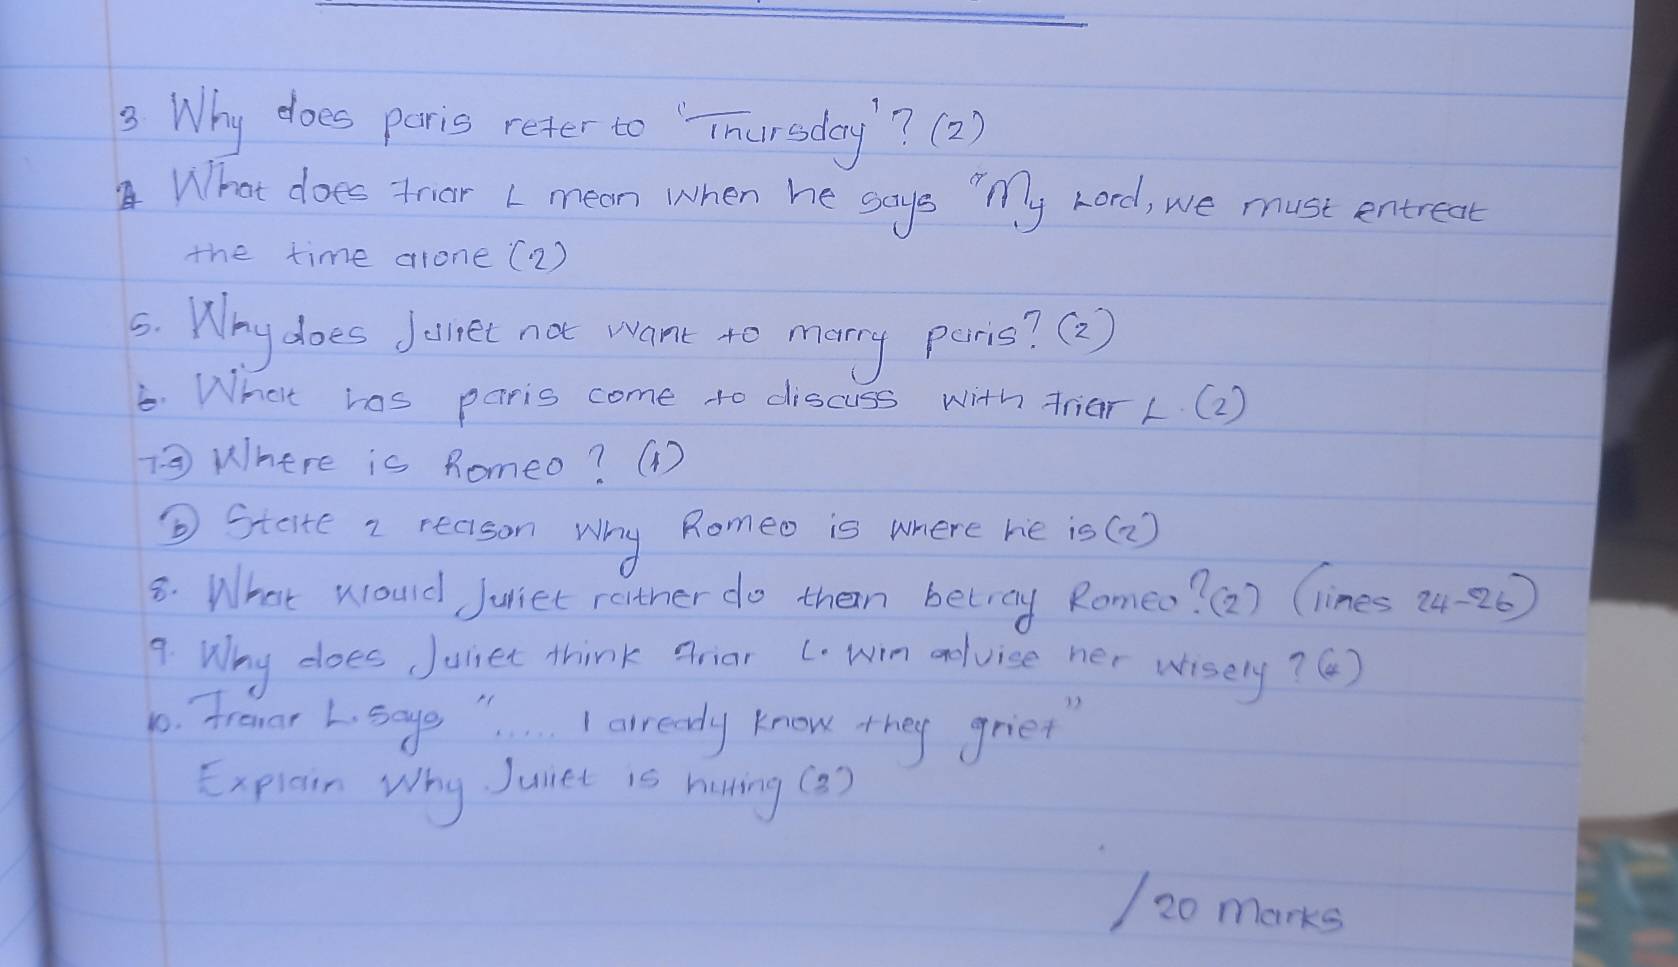 3. Why does paris refer to 'Thursday'? (2)
4 What does friar L mean when he says "My Lord, we must entreat
the time alone (2)
5. Why does Juliet not want to marry paris? (2)
6. What has paris come to discuss with friar L. (2)
7. a) Where is Romeo? (1)
b) State 2 reason why Romeo is where he is (2)
8. What would Juliet rather do than betray Romeo? (2) (lines 24-26)
9. Why does Juliet think friar L. advise her wisely?
10. L. says "..... I already know they grief"
Explain why Juliet is (3)
/20 marks